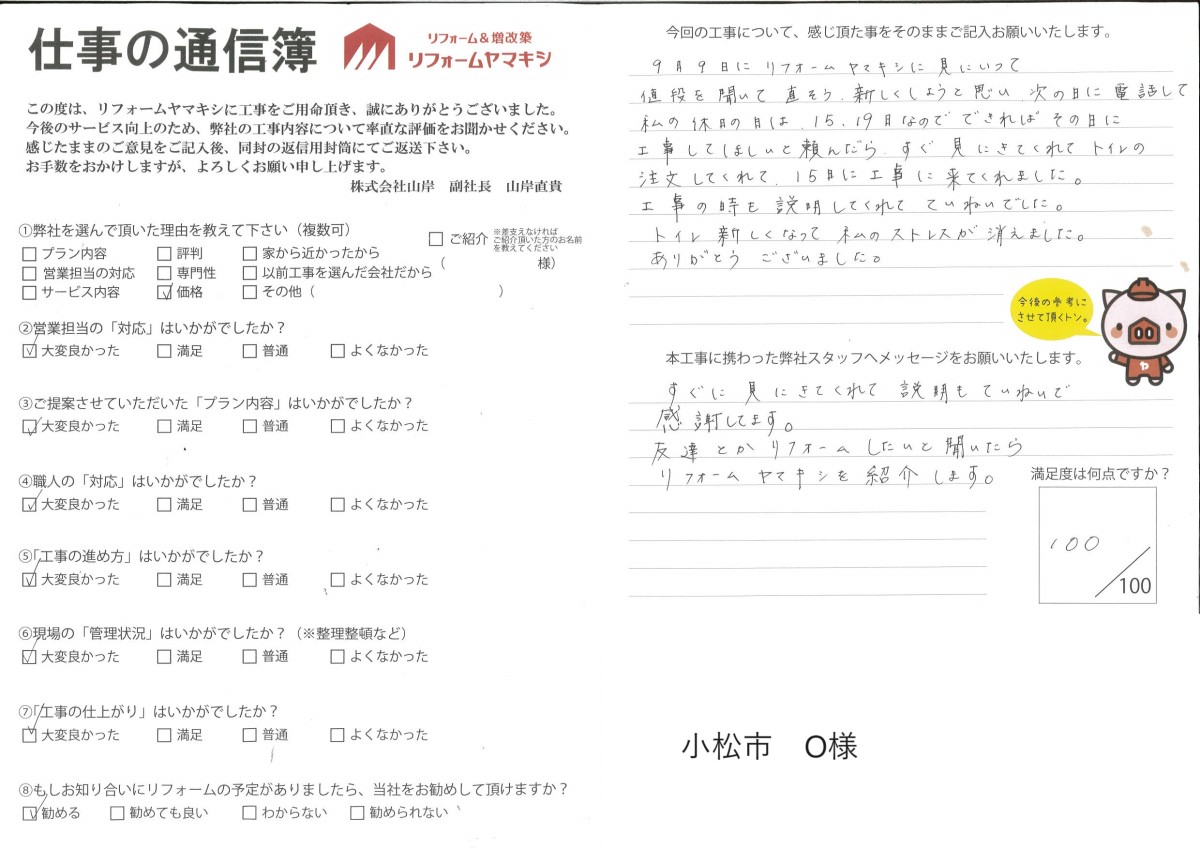 仕事の通信簿
リフォーム&増改築
リフォームヤマキシ
この度は、リフォームヤマキシに工事をご用命頂き、誠にありがとうございました。
今後のサービス向上のため、弊社の工事内容について率直な評価をお聞かせください。
感じたままのご意見をご記入後、同封の返信用封筒にてご返送下さい。
お手数をおかけしますが、よろしくお願い申し上げます。
株式会社山岸 副社長 山岸直貴
①弊社を選んで頂いた理由を教えて下さい（複数可）
□ プラン内容 □ 評判 □ 家から近かったから
□ 営業担当の対応 □ 専門性 □ 以前工事を選んだ会社だから
□ サービス内容 ☑ 価格 □ その他（ ）
□ ご紹介 ※差支えなければ
ご紹介頂いた方のお名前
を教えてください
（ 様）
②営業担当の「対応」はいかがでしたか？
☑ 大変良かった □ 満足 □ 普通 □ よくなかった
③ご提案させていただいた「プラン内容」はいかがでしたか？
☑ 大変良かった □ 満足 □ 普通 □ よくなかった
④職人の「対応」はいかがでしたか？
☑ 大変良かった □ 満足 □ 普通 □ よくなかった
⑤「工事の進め方」はいかがでしたか？
☑ 大変良かった □ 満足 □ 普通 □ よくなかった
⑥現場の「管理状況」はいかがでしたか？（※整理整頓など）
☑ 大変良かった □ 満足 □ 普通 □ よくなかった
⑦「工事の仕上がり」はいかがでしたか？
☑ 大変良かった □ 満足 □ 普通 □ よくなかった
⑧もしお知り合いにリフォームの予定がありましたら、当社をお勧めして頂けますか？
☑ 勧める □ 勧めても良い □ わからない □ 勧められない
今回の工事について、感じ頂た事をそのままご記入お願いいたします。
9月9日に リフォーム ヤマキシに 見にいって
値段を聞いて 直そう、新しくしようと思い、次の日に 電話して
私の休日の日は、15、19日なので できれば その日に
工事してほしいと頼んだら、すぐ 見にきてくれて トイレの
注文してくれて、15日に 工事に 来てくれました。
工事の時も 説明してくれて ていねいでした。
トイレ 新しくなって 私のストレスが 消えました。
ありがとう ございました。
今後の参考に
させて頂くトン。
ヤ
本工事に携わった弊社スタッフへメッセージをお願いいたします。
すぐに 見にきてくれて 説明も ていねいで
感謝してます。
友達とか リフォーム したいと 聞いたら
リフォーム ヤマキシを 紹介 します。
満足度は何点ですか？
100
/100
小松市 O様